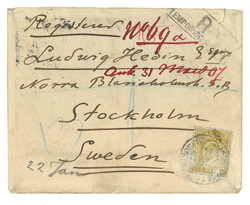 Registered
R
No 69a
Ludwig Hedin Esqre
Ank 31 Mars 07
Norra Blasieholmsh. 5.B
Stockholm
Sweden
22 Jan